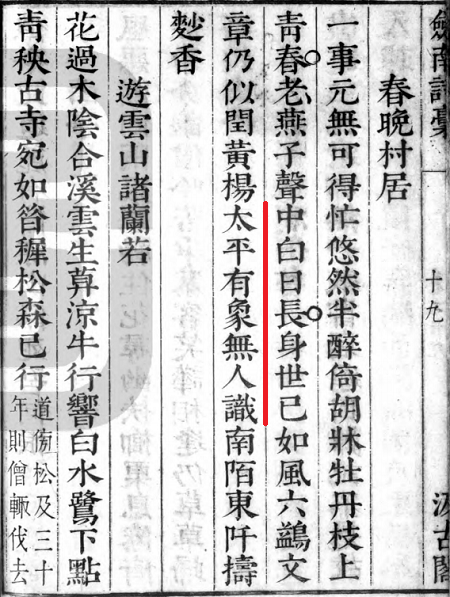 劍南詩稾 一 十九 汲古閣
春晚村居
一事元無可得忙悠然半醉倚胡牀牡丹枝上
青春老燕子聲中白日長身世已如風六鷁文
章仍似閏黃楊太平有象無人識南陌東阡擣
麨香
遊雲山諸蘭若
花過木陰合溪雲生草涼牛行響白水鷺下點
青秧古寺宛如昔穉松森已行道傍松及三十
年則僧輒伐去